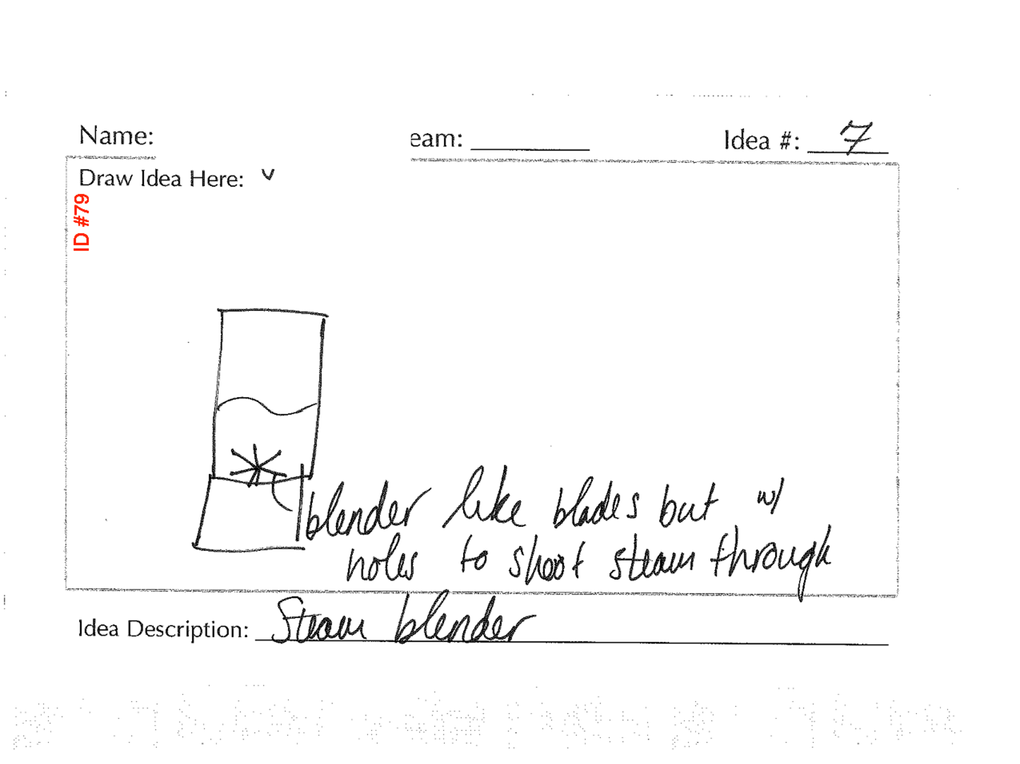 Name: eam: Idea #: 7
Draw Idea Here:
ID #79
blender like blades but w/
holes to shoot steam through
Idea Description: Steam blender